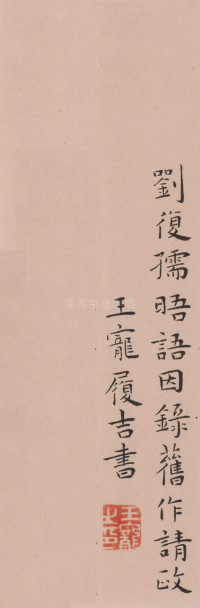 劉復孺晤語因錄舊作請政
王寵履吉書
王寵之印